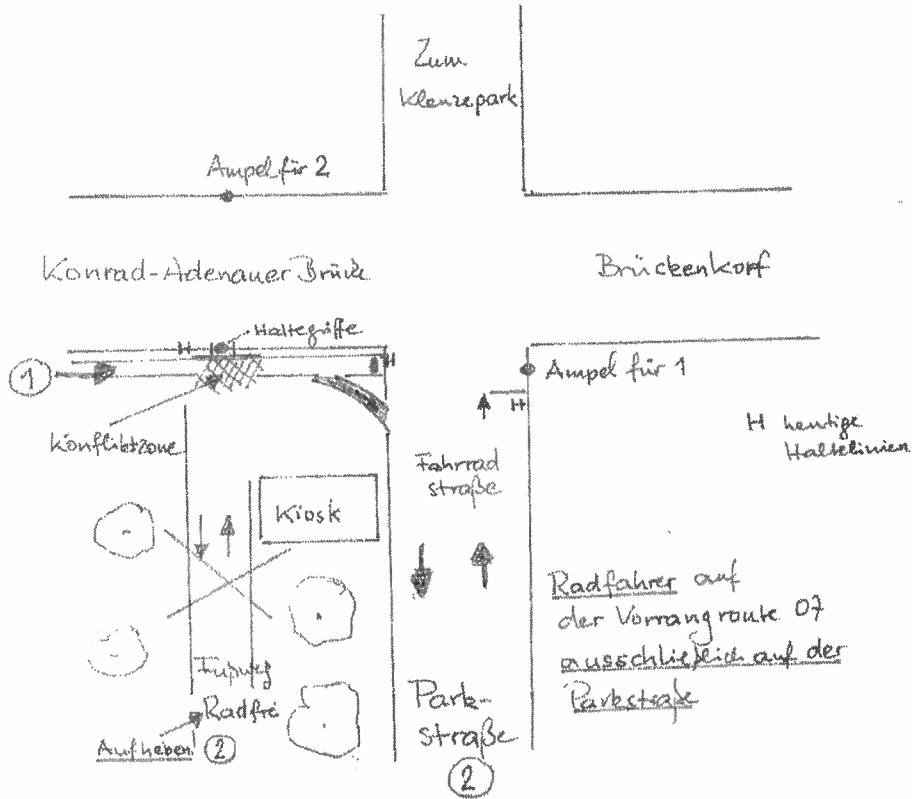 Zum
Klenzepark
Ampel für 2
Konrad-Adenauer Brücke
Brückenkopf
Haltegriffe
H
H
1
Ampel für 1
Konfliktzone
H
H heutige
Haltelinien
Fahrrad
straße
Kiosk
Radfahrer auf
der Vorrangroute 07
ausschließlich auf der
Parkstraße
Fußweg
Radfrei
Aufheben
2
Park-
straße
2